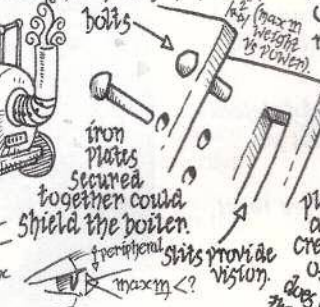 bolts
(max m
weight
vs power)
iron
plates
secured
together could
shield the boiler.
peripheral
max m <?
Slits provide
vision.